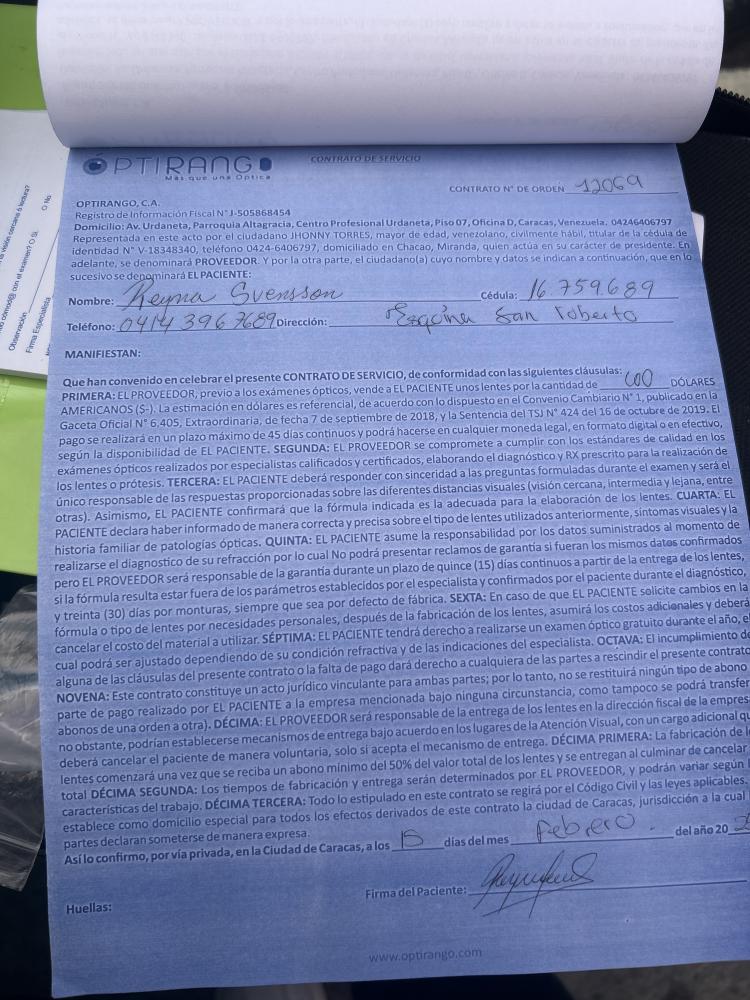 OPTIRANGO
Más que una Óptica
CONTRATO DE SERVICIO
CONTRATO N° DE ORDEN 12069
OPTIRANGO, C.A.
Registro de Información Fiscal N° J-505868454
Domicilio: Av. Urdaneta, Parroquia Altagracia, Centro Profesional Urdaneta, Piso 07, Oficina D, Caracas, Venezuela. 04246406797
Representada en este acto por el ciudadano JHONNY TORRES, mayor de edad, venezolano, civilmente hábil, titular de la cédula de
identidad N° V-18348340, teléfono 0424-6406797, domiciliado en Chacao, Miranda, quien actúa en su carácter de presidente. En
adelante, se denominará PROVEEDOR. Y por la otra parte, el ciudadano(a) cuyo nombre y datos se indican a continuación, que en lo
sucesivo se denominará EL PACIENTE:
Nombre: Reyna Svensson Cédula: 16.759.689
Teléfono: 0414 396 7689 Dirección: Esquina San Roberto
MANIFIESTAN:
Que han convenido en celebrar el presente CONTRATO DE SERVICIO, de conformidad con las siguientes cláusulas:
PRIMERA: EL PROVEEDOR, previo a los exámenes ópticos, vende a EL PACIENTE unos lentes por la cantidad de DÓLARES
AMERICANOS ($-). La estimación en dólares es referencial, de acuerdo con lo dispuesto en el Convenio Cambiario N° 1, publicado en la
Gaceta Oficial N° 6.405, Extraordinaria, de fecha 7 de septiembre de 2018, y la Sentencia del TSJ N° 424 del 16 de octubre de 2019. El
pago se realizará en un plazo máximo de 45 días continuos y podrá hacerse en cualquier moneda legal, en formato digital o en efectivo,
según la disponibilidad de EL PACIENTE. SEGUNDA: EL PROVEEDOR se compromete a cumplir con los estándares de calidad en los
exámenes ópticos realizados por especialistas calificados y certificados, elaborando el diagnóstico y RX prescrito para la realización de
los lentes o prótesis. TERCERA: EL PACIENTE deberá responder con sinceridad a las preguntas formuladas durante el examen y será el
único responsable de las respuestas proporcionadas sobre las diferentes distancias visuales (visión cercana, intermedia y lejana, entre
otras). Asimismo, EL PACIENTE confirmará que la fórmula indicada es la adecuada para la elaboración de los lentes. CUARTA: EL
PACIENTE declara haber informado de manera correcta y precisa sobre el tipo de lentes utilizados anteriormente, síntomas visuales y la
historia familiar de patologías ópticas. QUINTA: EL PACIENTE asume la responsabilidad por los datos suministrados al momento de
realizarse el diagnostico de su refracción por lo cual No podrá presentar reclamos de garantía si fueran los mismos datos confirmados
pero EL PROVEEDOR será responsable de la garantía durante un plazo de quince (15) días continuos a partir de la entrega de los lentes,
si la fórmula resulta estar fuera de los parámetros establecidos por el especialista y confirmados por el paciente durante el diagnóstico,
y treinta (30) días por monturas, siempre que sea por defecto de fábrica. SEXTA: En caso de que EL PACIENTE solicite cambios en la
fórmula o tipo de lentes por necesidades personales, después de la fabricación de los lentes, asumirá los costos adicionales y deberá
cancelar el costo del material a utilizar. SÉPTIMA: EL PACIENTE tendrá derecho a realizarse un examen óptico gratuito durante el año, el
cual podrá ser ajustado dependiendo de su condición refractiva y de las indicaciones del especialista. OCTAVA: El incumplimiento de
alguna de las cláusulas del presente contrato o la falta de pago dará derecho a cualquiera de las partes a rescindir el presente contrato
NOVENA: Este contrato constituye un acto jurídico vinculante para ambas partes; por lo tanto, no se restituirá ningún tipo de abono
parte de pago realizado por EL PACIENTE a la empresa mencionada bajo ninguna circunstancia, como tampoco se podrá transfer
abonos de una orden a otra). DÉCIMA: EL PROVEEDOR será responsable de la entrega de los lentes en la dirección fiscal de la empres
no obstante, podrían establecerse mecanismos de entrega bajo acuerdo en los lugares de la Atención Visual, con un cargo adicional qu
deberá cancelar el paciente de manera voluntaria, solo si acepta el mecanismo de entrega. DÉCIMA PRIMERA: La fabricación de l
lentes comenzará una vez que se reciba un abono mínimo del 50% del valor total de los lentes y se entregan al culminar de cancelar
total DÉCIMA SEGUNDA: Los tiempos de fabricación y entrega serán determinados por EL PROVEEDOR, y podrán variar según l
características del trabajo. DÉCIMA TERCERA: Todo lo estipulado en este contrato se regirá por el Código Civil y las leyes aplicables.
establece como domicilio especial para todos los efectos derivados de este contrato la ciudad de Caracas, jurisdicción a la cual
partes declaran someterse de manera expresa.
Así lo confirmo, por vía privada, en la Ciudad de Caracas, a los 15 días del mes Febrero. del año 20
Firma del Paciente:
Huellas:
www.optirango.com
Observación
Firma Especialista